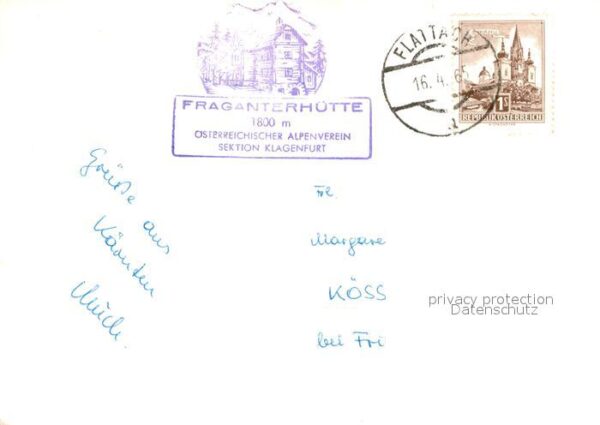 FRAGANTERHÜTTE
1800 m
ÖSTERREICHISCHER ALPENVEREIN
SEKTION KLAGENFURT
FLATTACH
16.4.6
a
1S
REPUBLIK ÖSTERREICH
Grüße aus
Kärnten
Fr.
Margare
KÖSS
bei Fri
privacy protection
Datenschutz